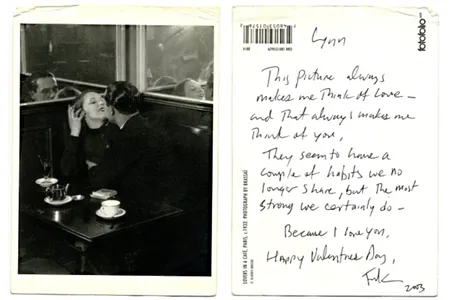 fotofolio
Lynn
This picture always
makes me think of love —
and that always makes me
think of you.
They seem to have a
couple of habits we no
longer share, but the most
strong we certainly do —
Because I love you.
Happy Valentines Day,
2003
LOVERS IN A CAFÉ, PARIS, c.1932 PHOTOGRAPH BY BRASSAÏ